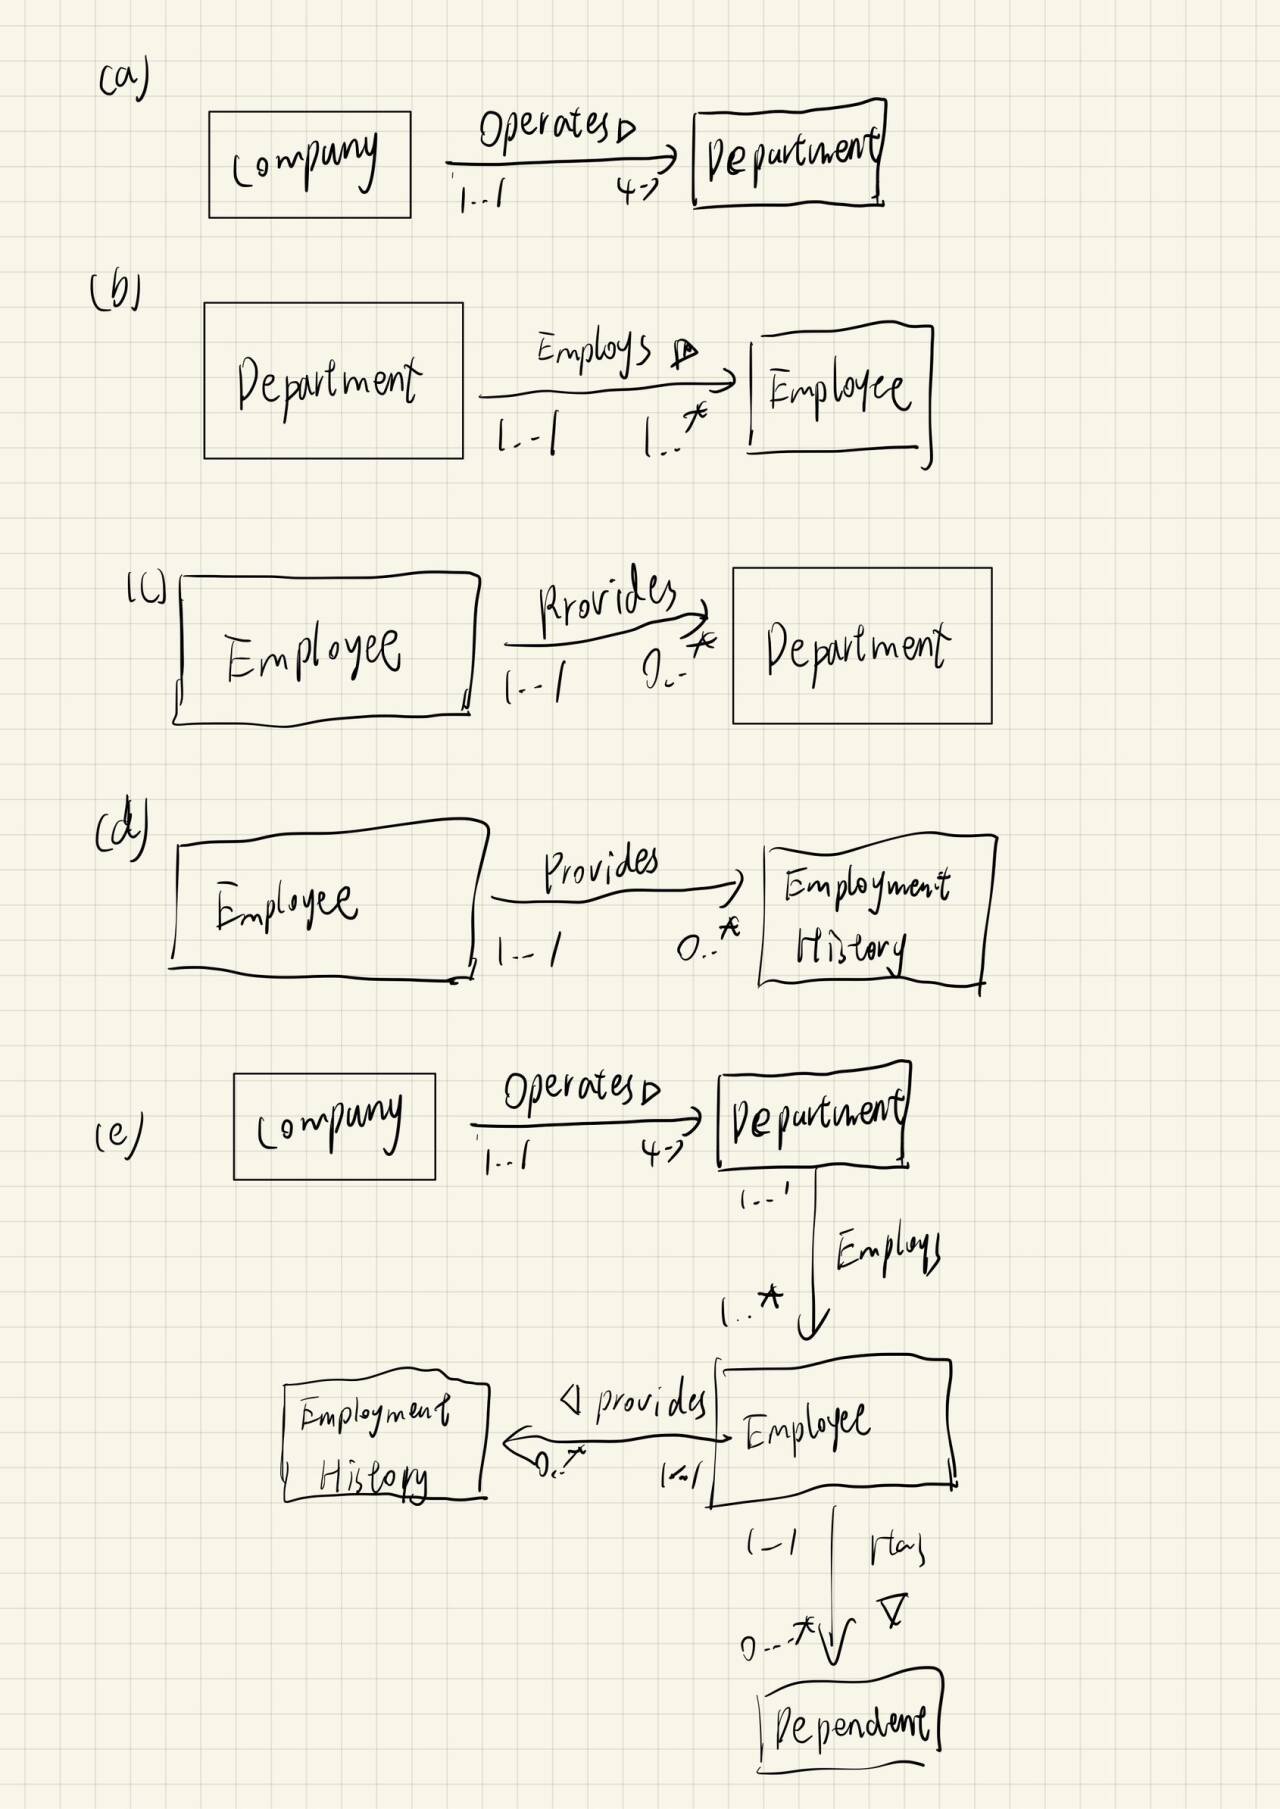 (a)
Company
Operates
Department
1..1
(b)
Department
Employs
Employee
1..1
1..*
(c)
Employee
Provides
Department
1..1
0..*
(d)
Employee
Provides
Employment
History
1..1
0..*
(e)
Company
Operates
Department
1..1
1..1
Employs
1..*
Employment
History
provides
Employee
0..*
1..1
1..1
Has
0...*
Dependent